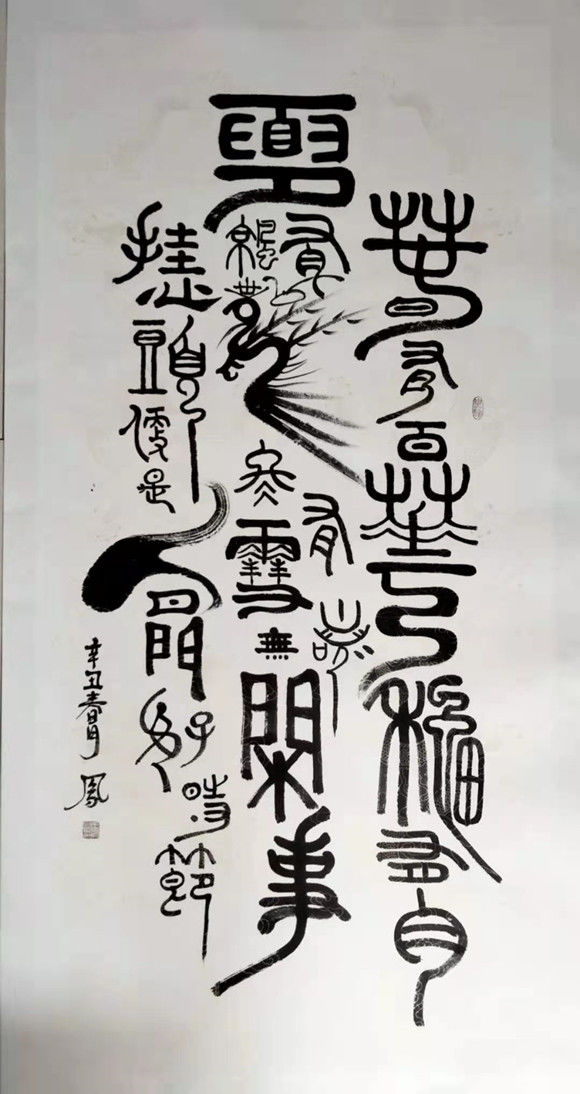 春有百華龝有月
夏有涼風冬有雪若無閑事
挂心頭便是人間好時節
辛丑春月 鳳